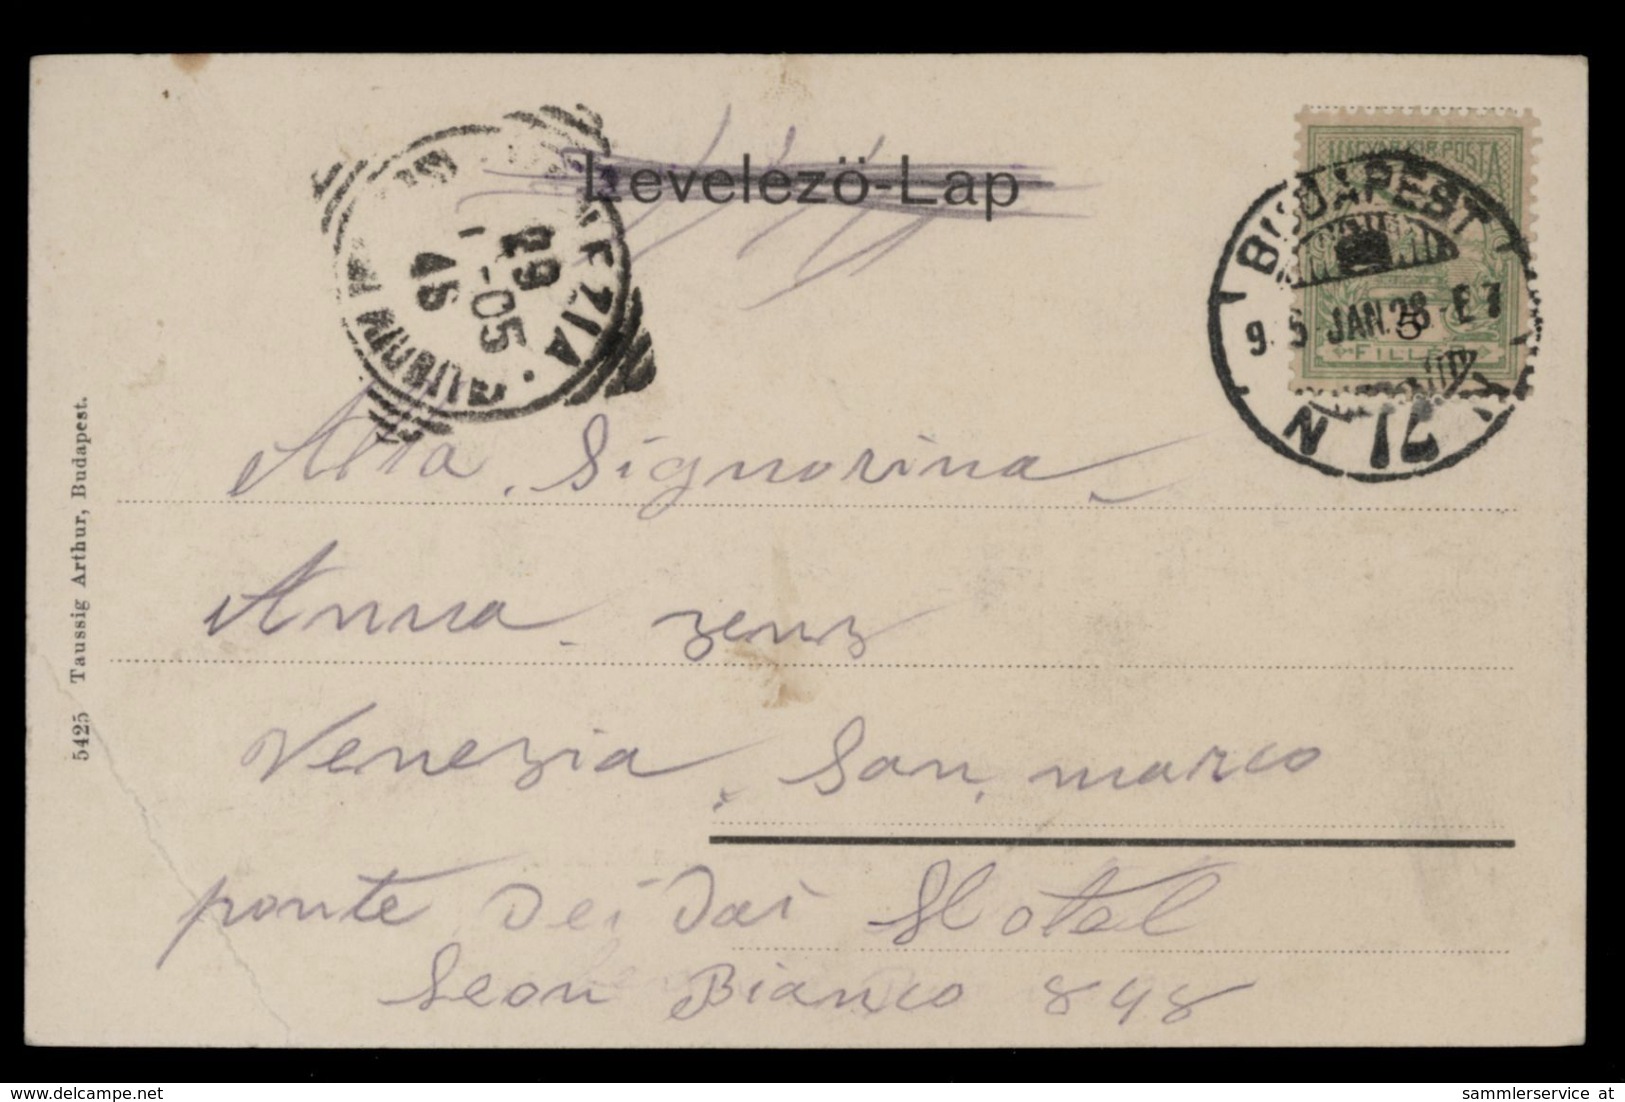 Levelezö-Lap
MAGYAR KIR. POSTA
5
FILLÉR
BUDAPEST
JAN. 28
72
VENEZIA
29
1-05
Alla Signorina
Anna
Venezia, San, marco
ponte Dei Dai Hotel
Leon Bianco 898
5425 Taussig Arthur, Budapest.
www.delcampe.net
sammlerservice at